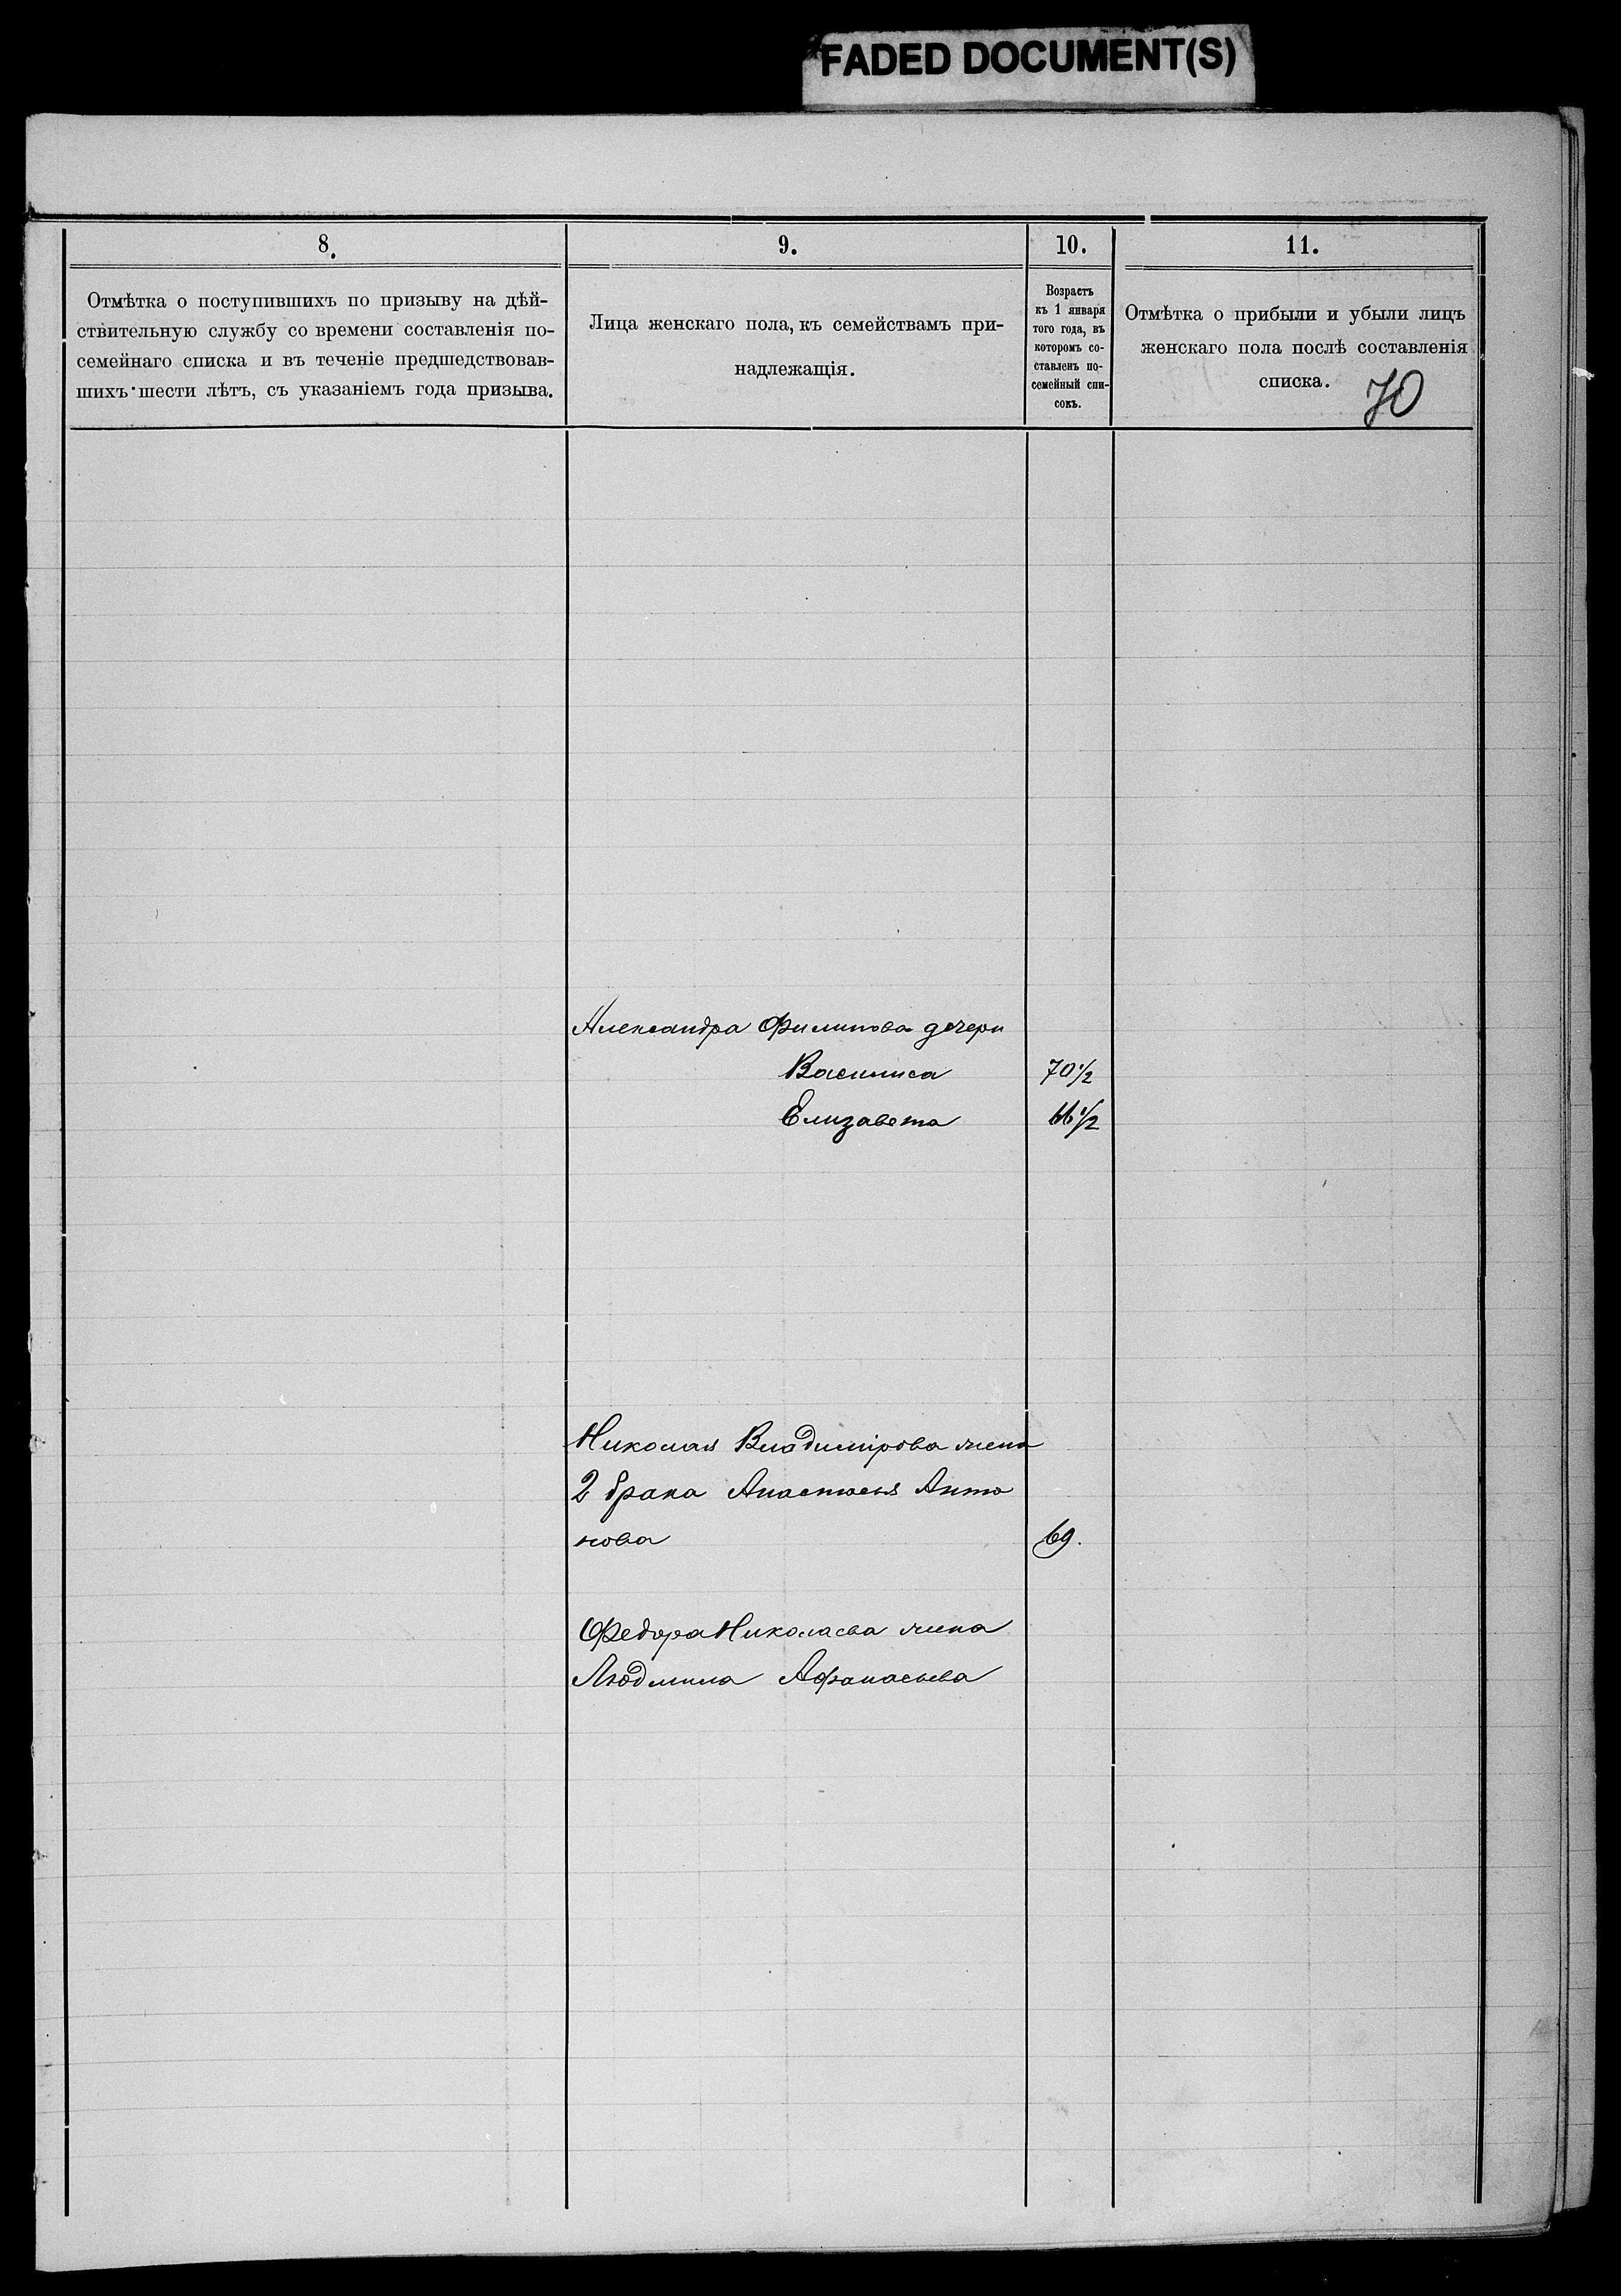 FADED DOCUMENT(S)
8.
9.
10.
11.
Отмѣтка о поступившихъ по призыву на дѣй-
ствительную службу со времени составленія по-
семейнаго списка и въ теченіе предшедствовав-
шихъ шести лѣтъ, съ указаніемъ года призыва.
Лица женскаго пола, къ семействамъ при-
надлежащія.
Возрастъ
къ 1 января
того года, въ
которомъ со-
ставленъ по-
семейный спи-
сокъ.
Отмѣтка о прибыли и убыли лицъ
женскаго пола послѣ составленія
списка.
70
Александра Филипова дочери
Василиса 70 1/2
Елизавета 66 1/2
Николая Владимірова жена
2 брака Анастасья Анто
нова 69.
Федора Николаева жена
Людмила Афанасьева